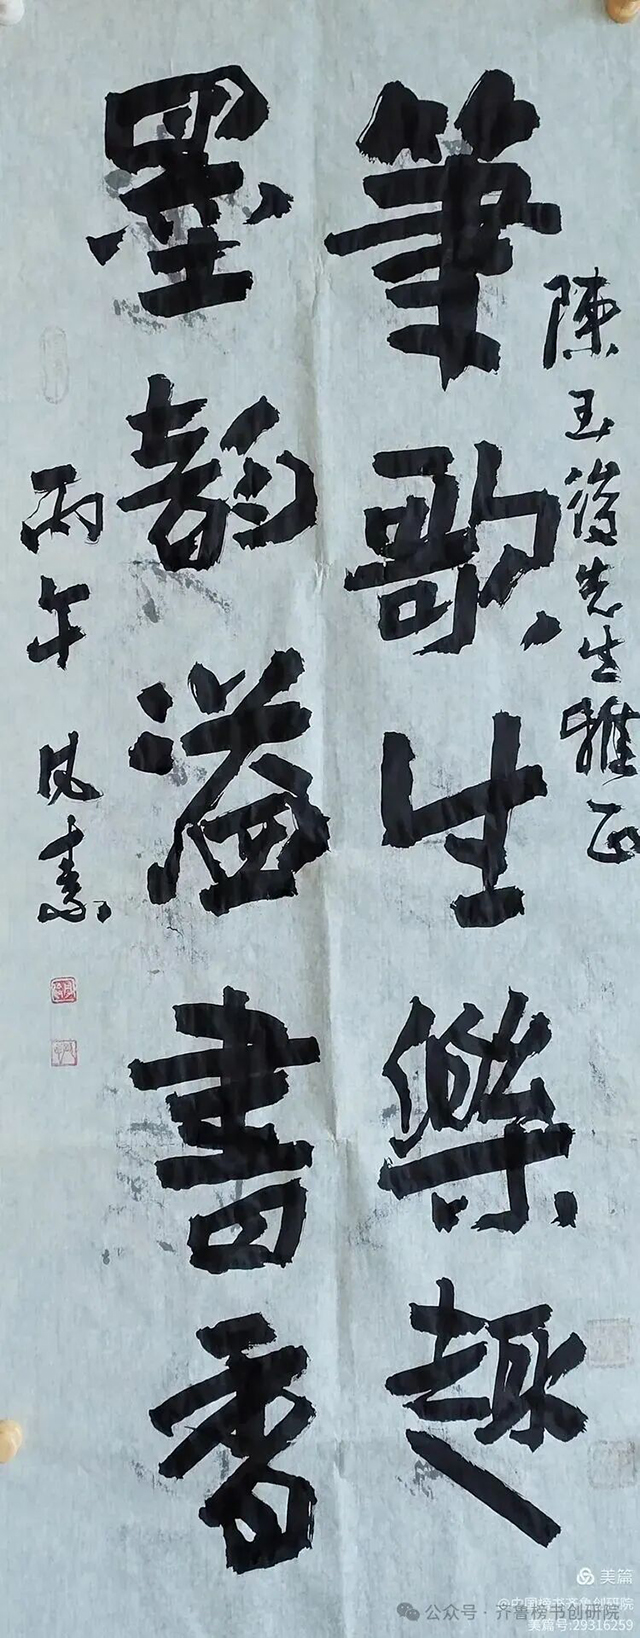 陳玉海先生雅正
筆歌生樂趣
墨韵溢書香
丙午
美篇
@中国榜书齐鲁创研院
公众号·齐鲁榜书创研院
美篇号:29316259